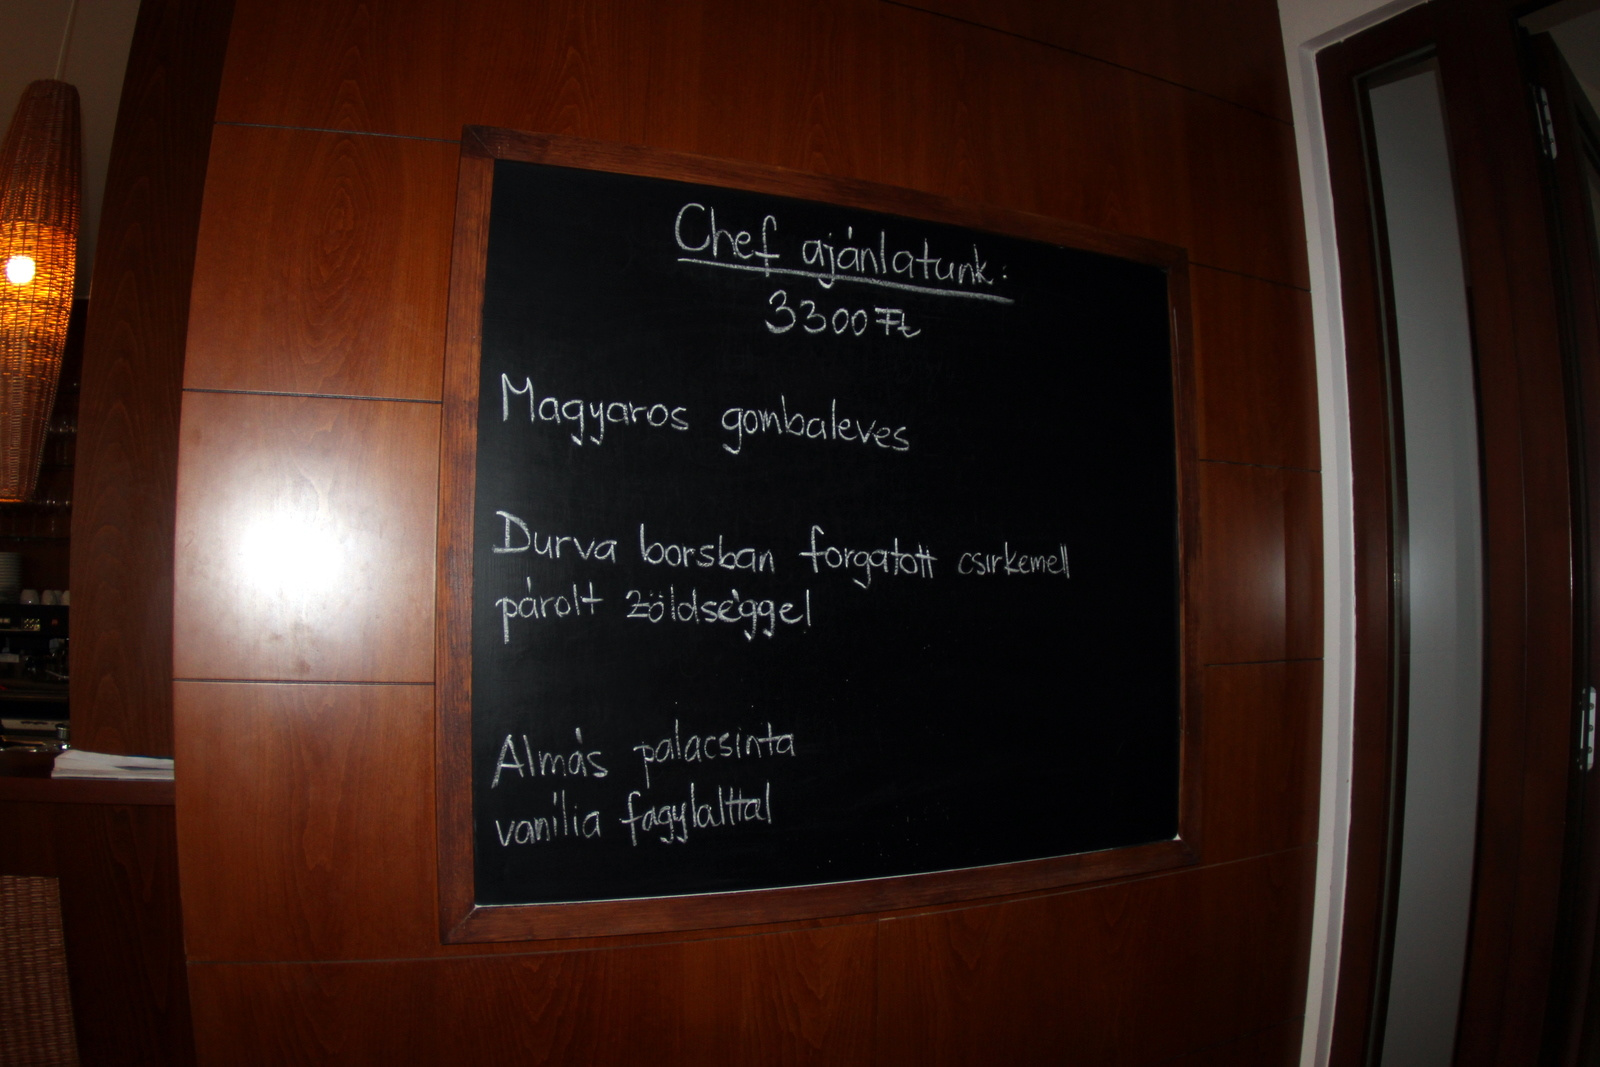 Chef ajánlatunk:
3300 Ft
Magyaros gombaleves
Durva borsban forgatott csirkemell
párolt zöldséggel
Almás palacsinta
vanília fagylalttal